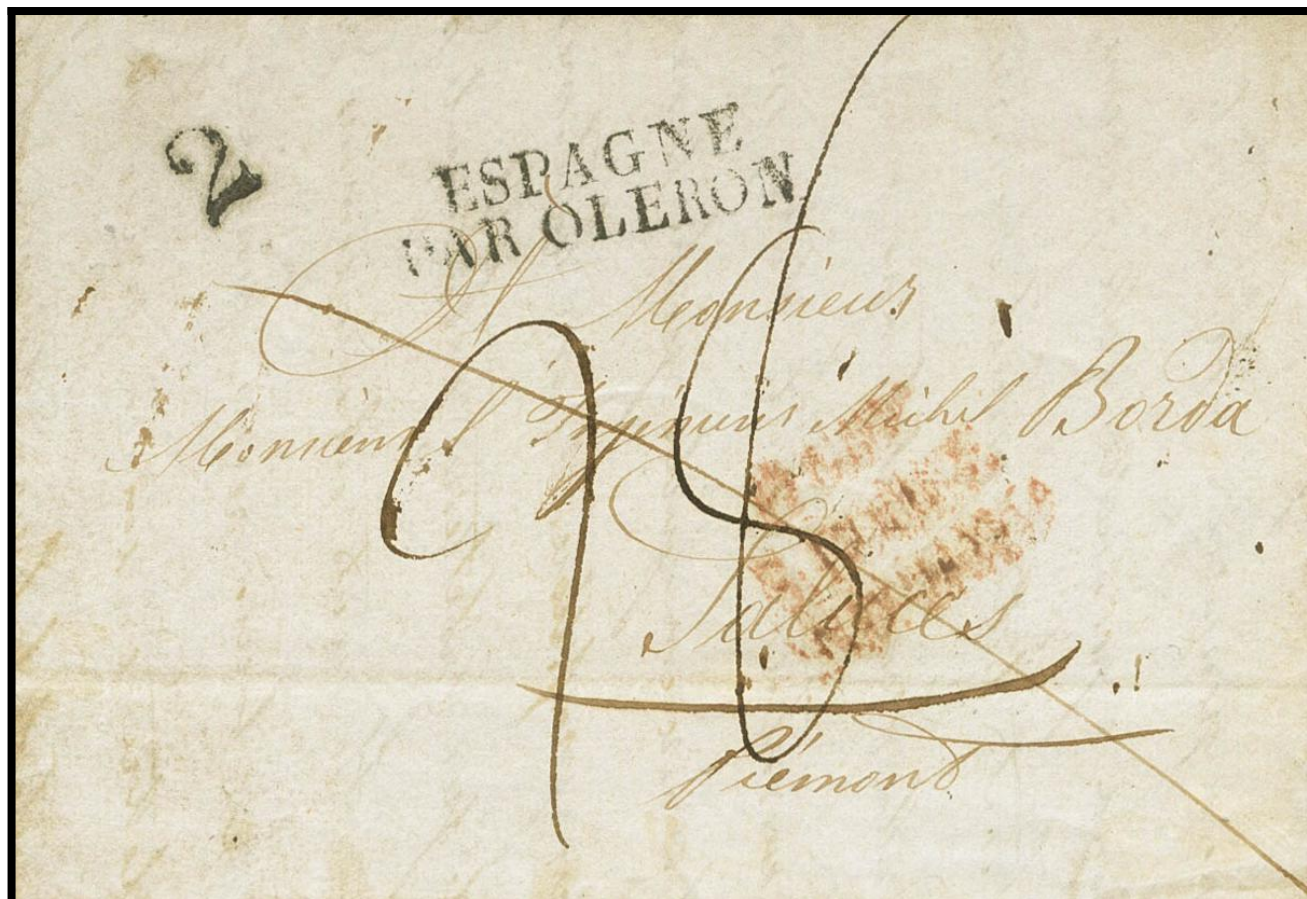 2
ESPAGNE
PAR OLERON
A Monsieur
Monsieur l' Ingénieur Michel Borda
Saluces
Piémont